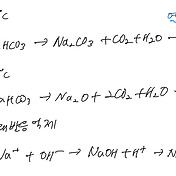 ℃
HCO₃ → Na₂CO₃ + CO₂ + H₂O →
℃
aHCO₃ → Na₂O + 2CO₂ + H₂O →
반응 억제
Na⁺ + OH⁻ → NaOH + H⁺ → N